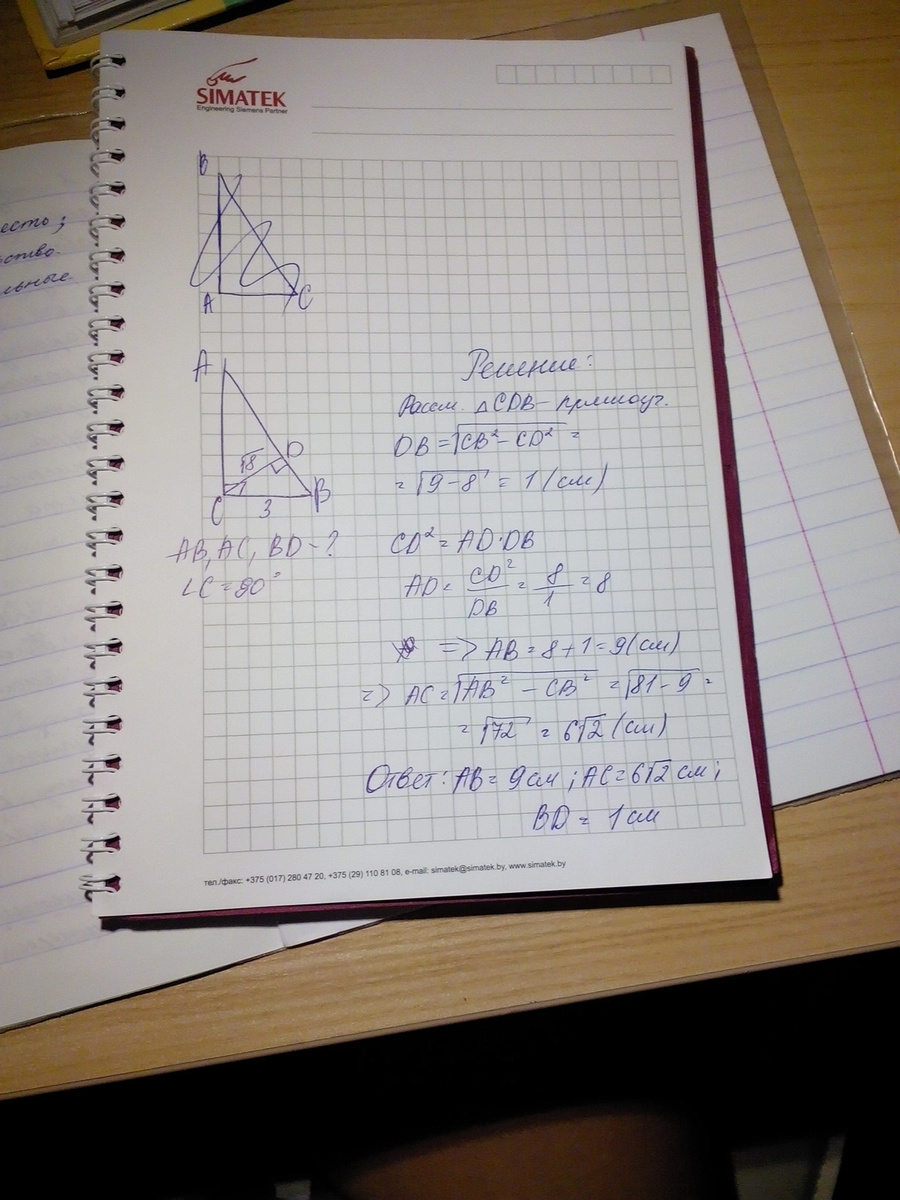 есть;
ство-
льные
SIMATEK
Engineering Siemens Partner
B
A C
A
√8 D
C 3 B
AB, AC, BD - ?
∠C = 90°
Решение:
Рассм. △CDB - прямоуг.
DB = √CB² - CD² =
= √9 - 8 = 1 (см)
CD² = AD·DB
AD = CD²/DB = 8/1 = 8
=> AB = 8 + 1 = 9 (см)
=> AC = √AB² - CB² = √81 - 9 =
= √72 = 6√2 (см)
Ответ: AB = 9 см; AC = 6√2 см;
BD = 1 см
тел./факс: +375 (017) 280 47 20, +375 (29) 110 81 08, e-mail: simatek@simatek.by, www.simatek.by